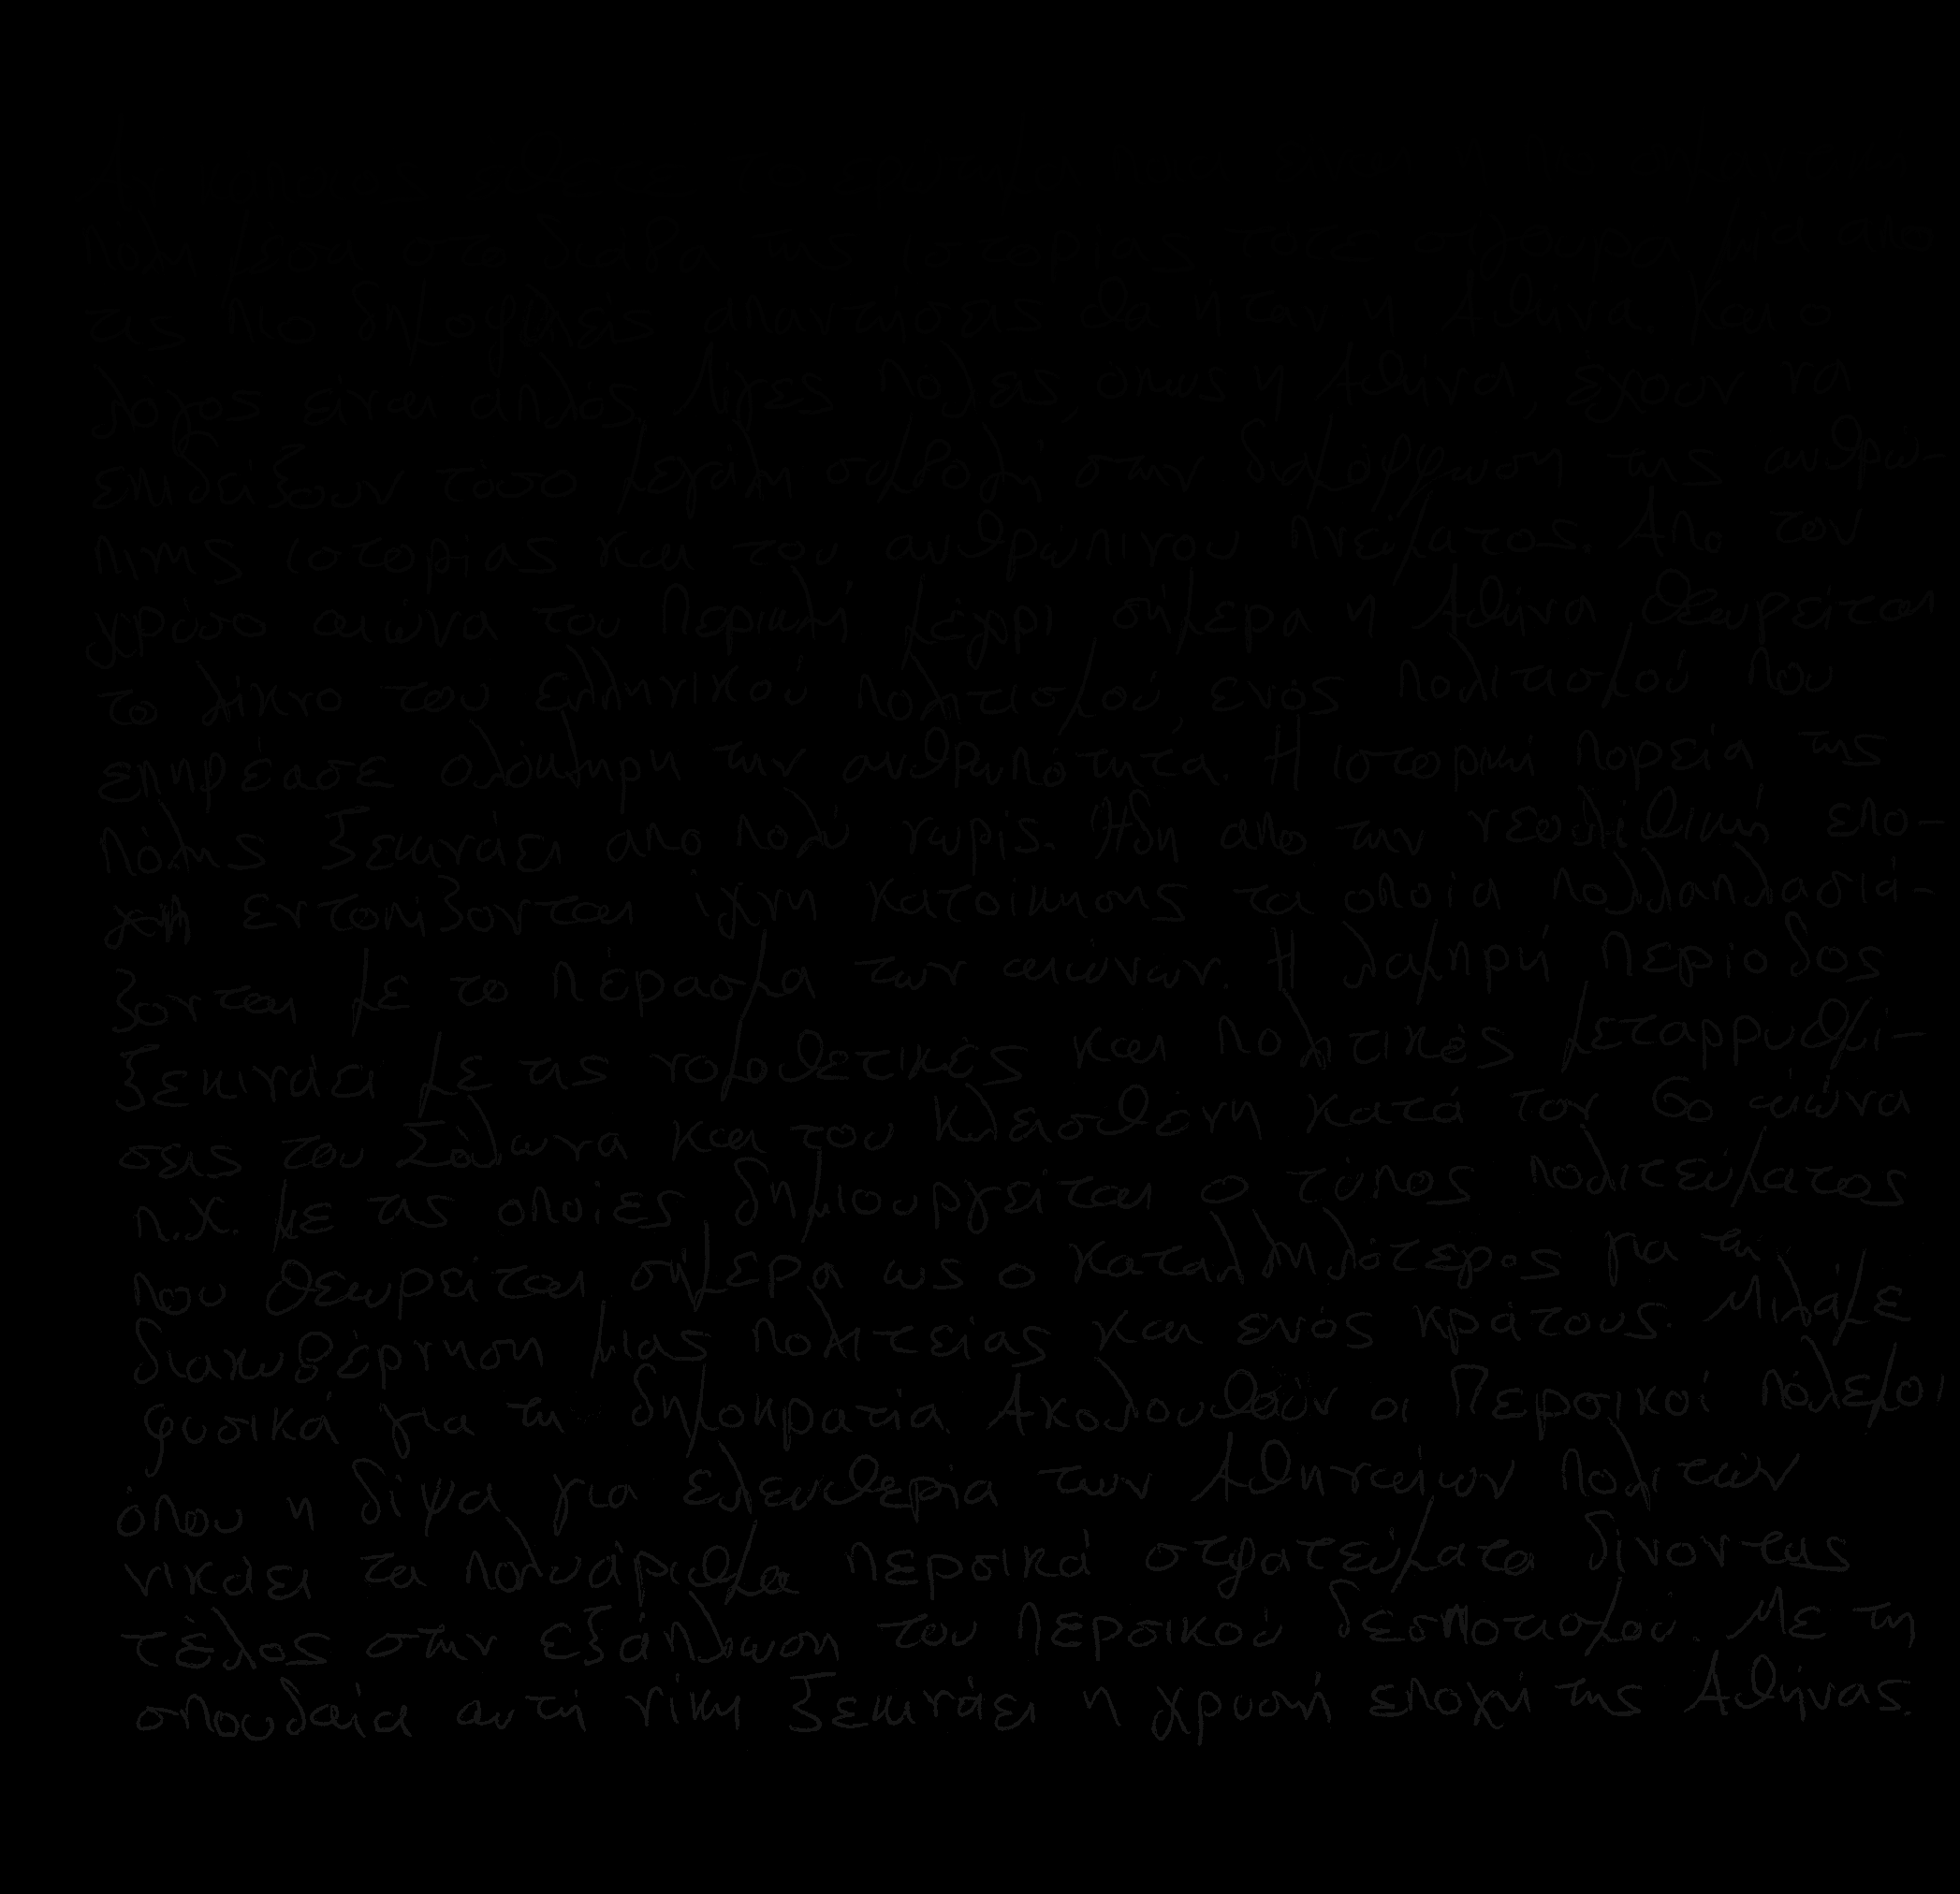 πολη μεσα στο διάβα της ιστορίας τοτε σιγουρα μία απο
τις πιο δημοφιλείς απαντήσεις θα ήταν η Αθήνα. Και ο
λόγος είναι απλός. Λίγες πόλεις, όπως η Αθήνα, έχουν να
επιδείξουν τόσο μεγάλη συμβολή στην διαμόρφωση της ανθρώ-
πινης ιστορίας και του ανθρώπινου πνεύματος. Απο τον
χρύσο αιώνα του Περικλή μέχρι σήμερα η Αθήνα θεωρείται
το λίκνο του ελληνικού πολιτισμού, ενός πολιτισμού που
επηρέασε ολόκληρη την ανθρωπότητα. Η ιστορική πορεία της
πόλης ξεκινάει απο πολύ νωρίς. Ήδη απο την νεολιθική επο-
χή εντοπίζονται ίχνη κατοίκησης τα οποία πολλαπλασιά-
ζονται με το πέρασμα των αιώνων. Η λαμπρή περίοδος
ξεκινάει με τις νομοθετικές και πολιτικές μεταρρυθμί-
σεις του Σόλωνα και του Κλεισθένη κατά τον 6ο αιώνα
π.Χ. με τις οποίες δημιουργείται ο τύπος πολιτεύματος
που θεωρείται σήμερα ως ο καταλληλότερος για τη
διακυβέρνηση μιας πολιτείας και ενός κράτους. Μιλάμε
φυσικά για τη δημοκρατία. Ακολουθούν οι Περσικοί πόλεμοι
όπου η δίψα για ελευθερία των Αθηναίων πολιτών
νικάει τα πολυάριθμα περσικά στρατεύματα δίνοντας
τέλος στην εξάπλωση του περσικού δεσποτισμού. Με τη
σπουδαία αυτή νίκη ξεκινάει η χρυσή εποχή της Αθήνας.